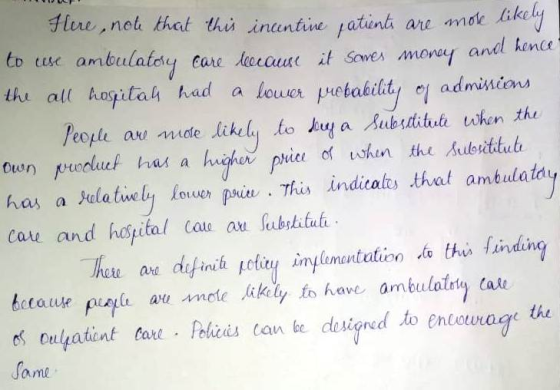 Here, note that this incentive patients are more likely
to use ambulatory care because it saves money and hence
the all hospitals had a lower probability of admissions
People are more likely to buy a Substitute when the
own product has a higher price or when the Substitute
has a relatively lower price. This indicates that ambulatory
care and hospital care are Substitute.
There are definite policy implementation to this finding
because people are more likely to have ambulatory care
or outpatient care. Policies can be designed to encourage the
Same.